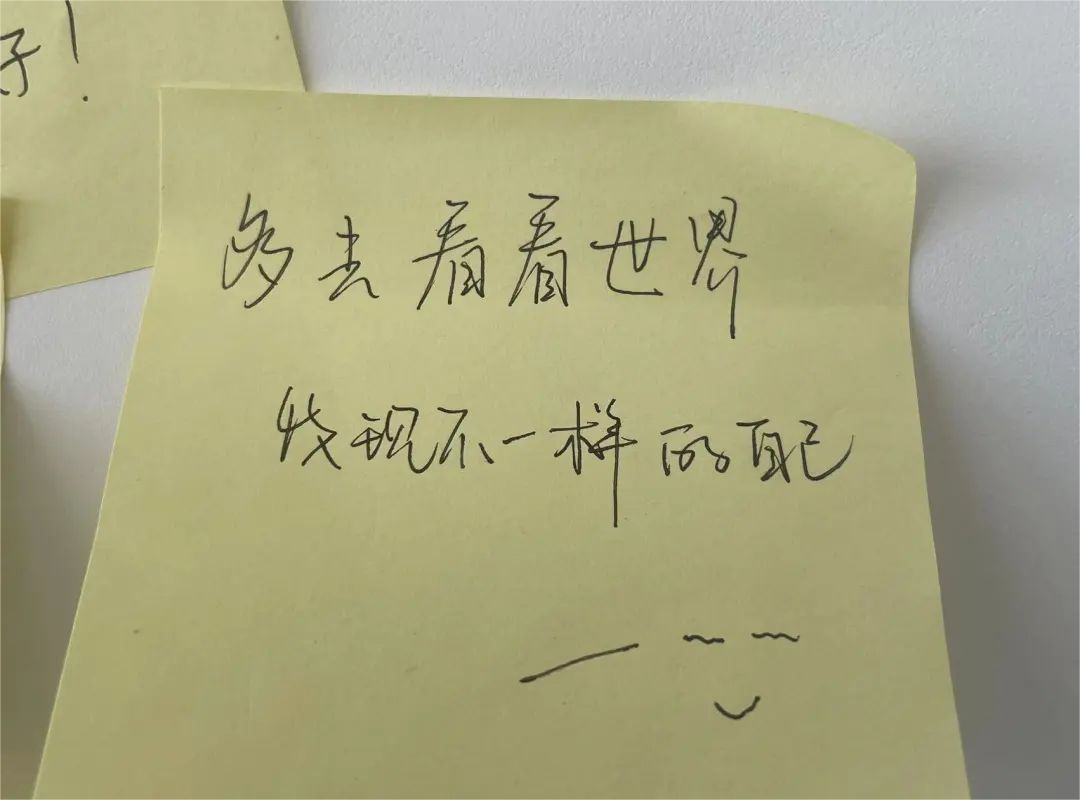 好!
多去看看世界
发现不一样的自己